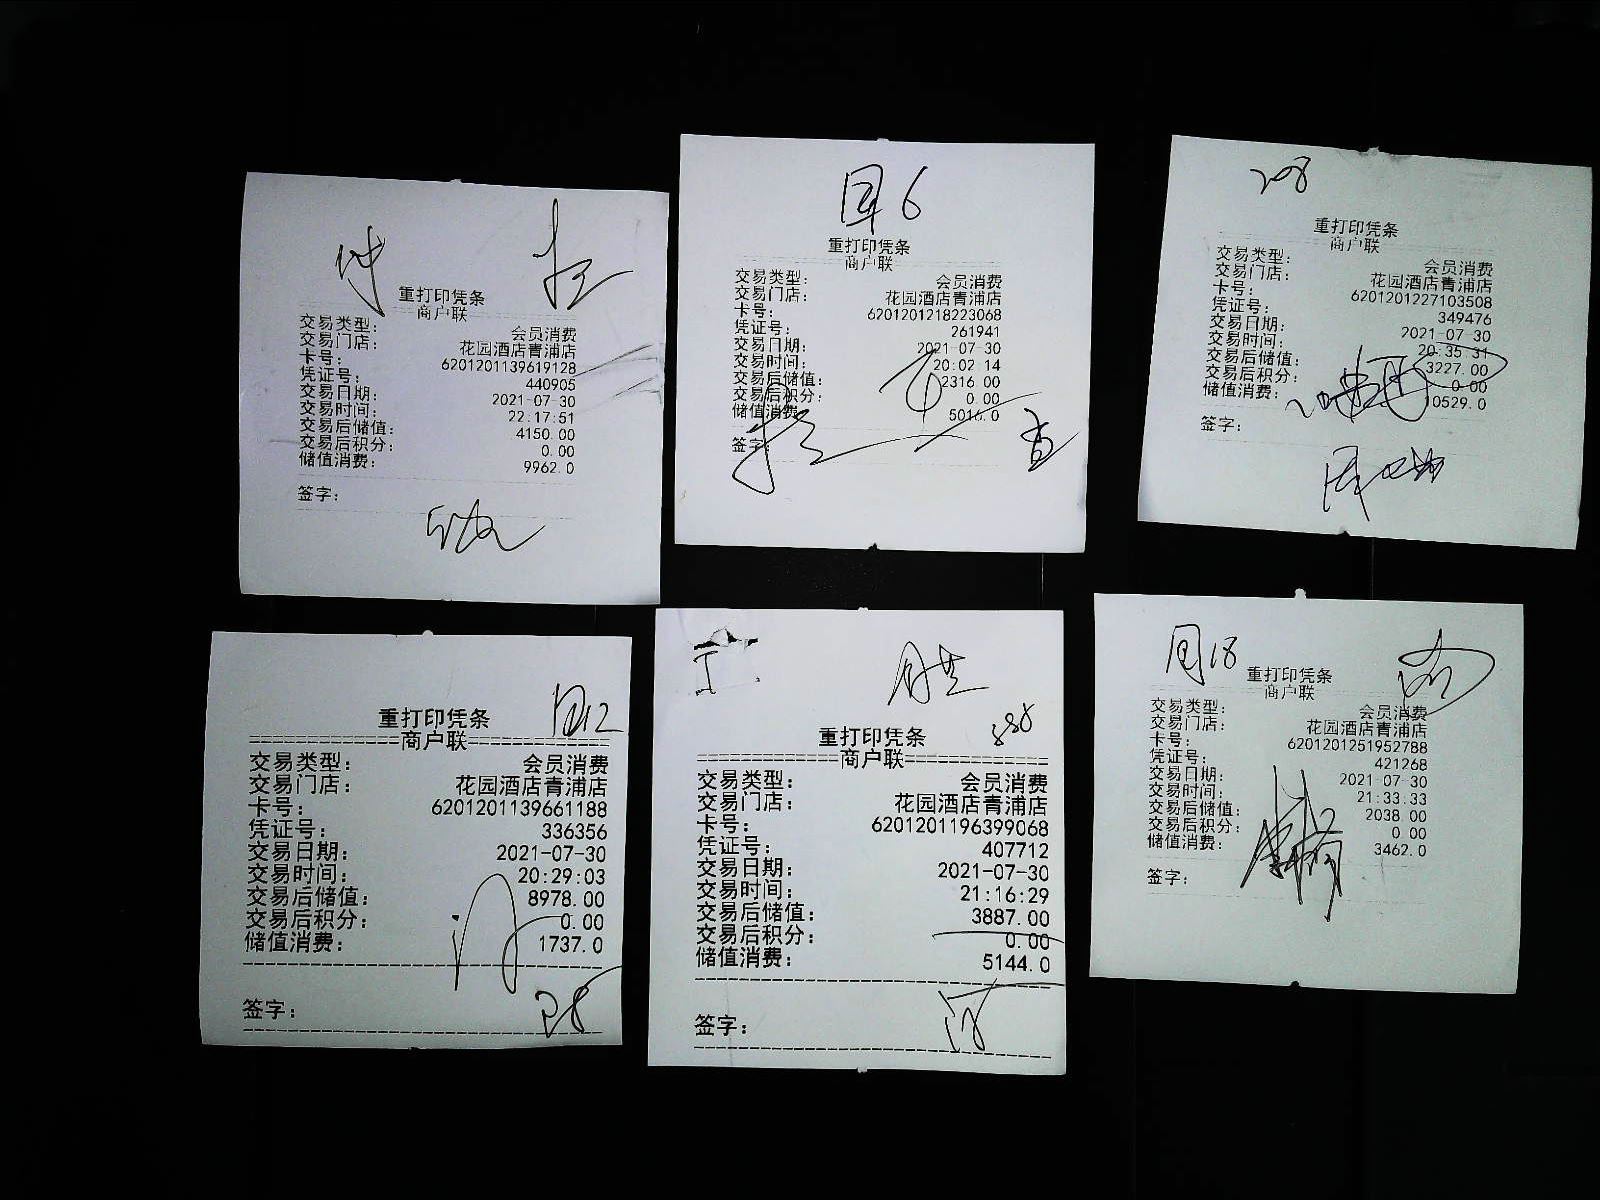 重打印凭条
商户联
交易类型: 会员消费
交易门店: 花园酒店青浦店
卡号: 6201201139619128
凭证号: 440905
交易日期: 2021-07-30
交易时间: 22:17:51
交易后储值: 4150.00
交易后积分: 0.00
储值消费: 9962.0
签字:
6
重打印凭条
商户联
交易类型: 会员消费
交易门店: 花园酒店青浦店
卡号: 6201201218223068
凭证号: 261941
交易日期: 2021-07-30
交易时间: 20:02:14
交易后储值: 2316.00
交易后积分: 0.00
储值消费: 5016.0
签字:
208
重打印凭条
商户联
交易类型: 会员消费
交易门店: 花园酒店青浦店
卡号: 6201201227103508
凭证号: 349476
交易日期: 2021-07-30
交易时间: 20:35:31
交易后储值: 3227.00
交易后积分: 0.00
储值消费: 10529.0
签字:
重打印凭条
商户联
交易类型: 会员消费
交易门店: 花园酒店青浦店
卡号: 6201201139661188
凭证号: 336356
交易日期: 2021-07-30
交易时间: 20:29:03
交易后储值: 8978.00
交易后积分: 0.00
储值消费: 1737.0
签字:
重打印凭条
商户联
交易类型: 会员消费
交易门店: 花园酒店青浦店
卡号: 6201201196399068
凭证号: 407712
交易日期: 2021-07-30
交易时间: 21:16:29
交易后储值: 3887.00
交易后积分: 0.00
储值消费: 5144.0
签字:
18
重打印凭条
商户联
交易类型: 会员消费
交易门店: 花园酒店青浦店
卡号: 6201201251952788
凭证号: 421268
交易日期: 2021-07-30
交易时间: 21:33:33
交易后储值: 2038.00
交易后积分: 0.00
储值消费: 3462.0
签字: